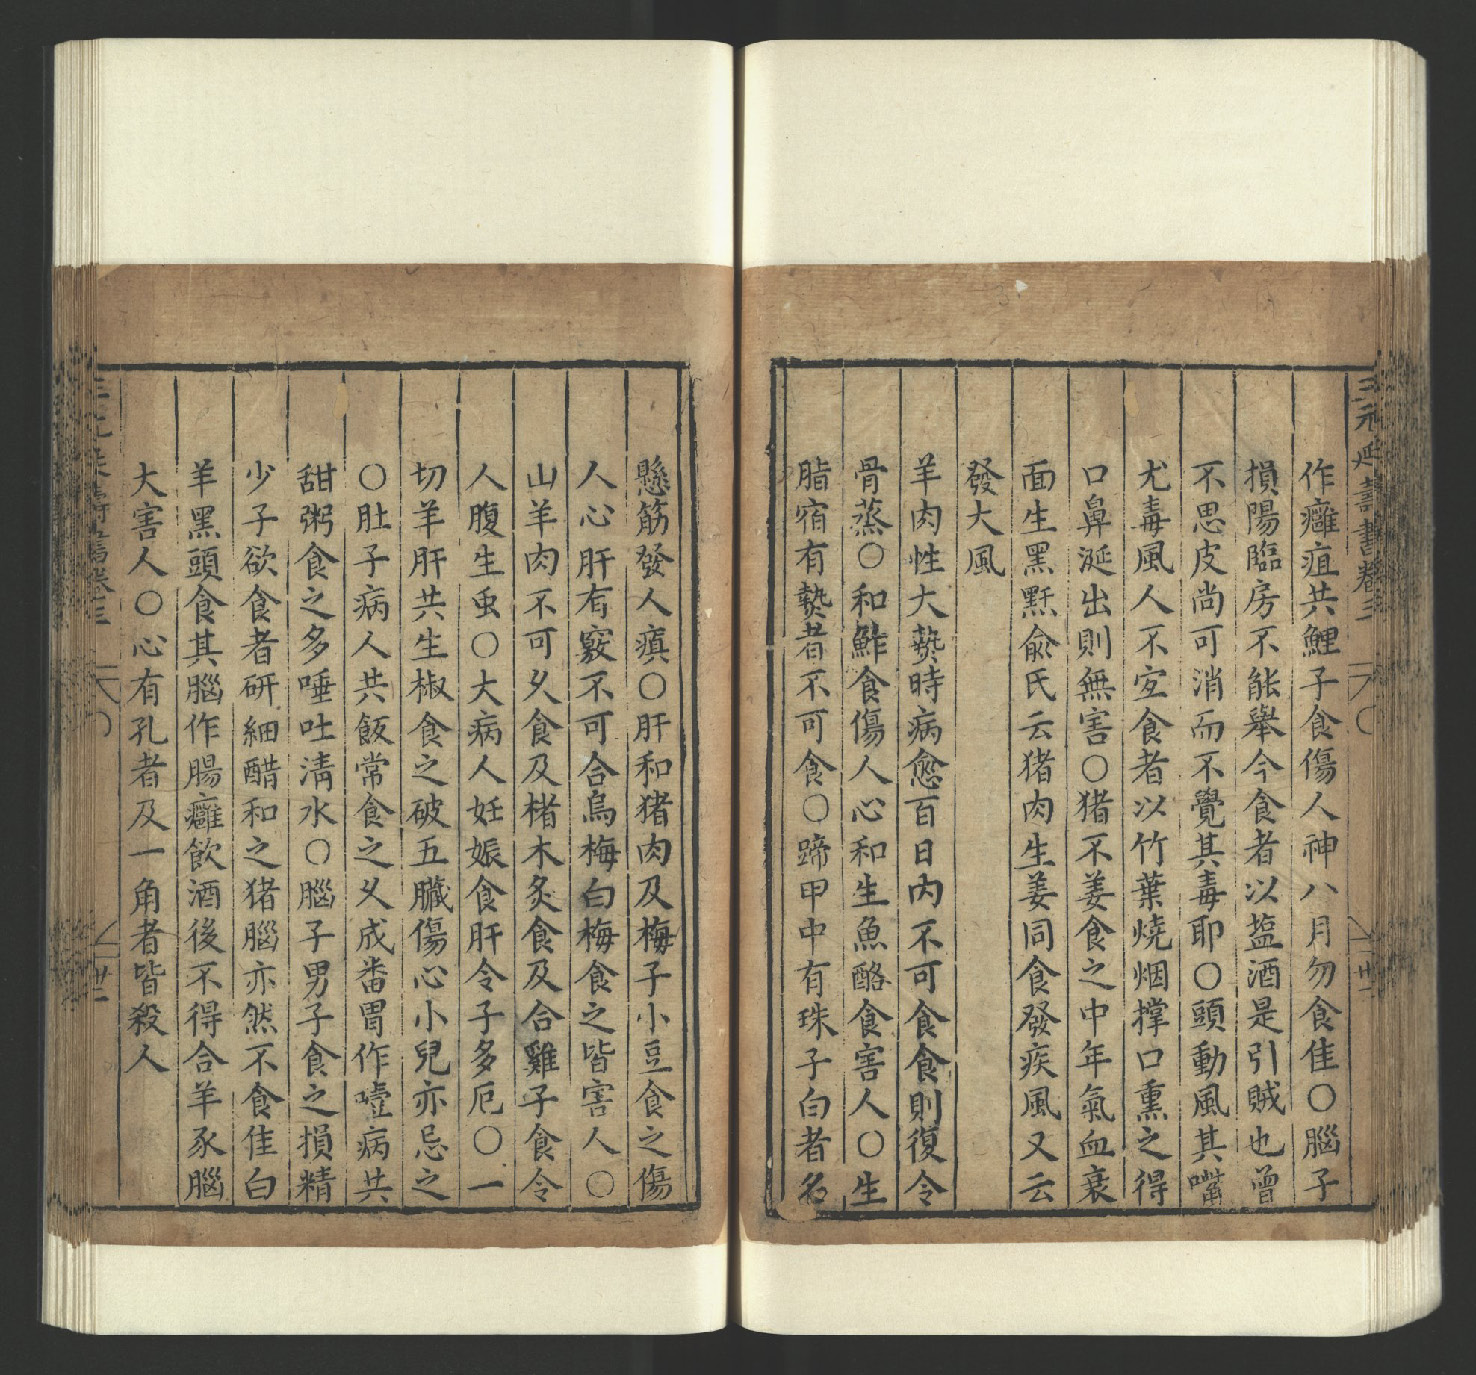 作癰疽共鯉子食傷人神八月勿食佳〇腦子
損陽臨房不能舉今食者以塩酒是引賊也曾
不思皮尚可消而不覺其毒耶〇頭動風其嘴
尤毒風人不宐食者以竹葉燒烟撑口熏之得
口鼻涎出則無害〇猪不姜食之中年氣血衰
面生黑䵟俞氏云猪肉生姜同食發疾風又云
發大風
羊肉性大𤍠時病愈百日内不可食食則復令
骨蒸〇和鮓食傷人心和生魚酪食害人〇生
脂宿有𤍠者不可食〇蹄甲中有珠子白者名
懸筋發人瘨〇肝和猪肉及梅子小豆食之傷
人心肝有竅不可合烏梅白梅食之皆害人〇
山羊肉不可乆食及楮木炙食及合雞子食令
人腹生虫〇大病人妊娠食肝令子多厄〇一
切羊肝共生椒食之破五臟傷心小兒亦忌之
〇肚子病人共飯常食之乆成畨胃作噎病共
甜粥食之多唾吐清水〇腦子男子食之損精
少子欲食者研細醋和之猪腦亦然不食佳白
羊黑頭食其腦作腸癰飲酒後不得合羊豕腦
大害人〇心有孔者及一角者皆殺人